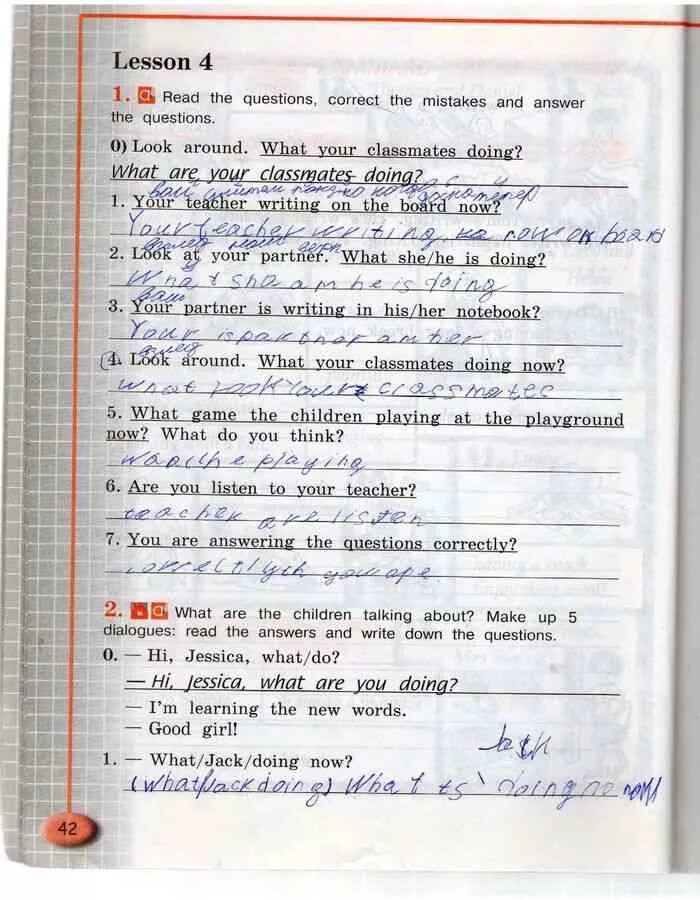 Lesson 4
1. Read the questions, correct the mistakes and answer
the questions.
0) Look around. What your classmates doing?
What are your classmates doing?
1. Your teacher writing on the board now?
Your teacher writing на now on board
2. Look at your partner. What she/he is doing?
What sha am he is doing
3. Your partner is writing in his/her notebook?
Your is
4. Look around. What your classmates doing now?
What look your classmates
5. What game the children playing at the playground
now? What do you think?
playing
6. Are you listen to your teacher?
teacher are listen
7. You are answering the questions correctly?
2. What are the children talking about? Make up 5
dialogues: read the answers and write down the questions.
0. — Hi, Jessica, what/do?
— Hi, Jessica, what are you doing?
— I'm learning the new words.
— Good girl!
1. — What/Jack/doing now?
(What/Jack doing) What ts doing
42